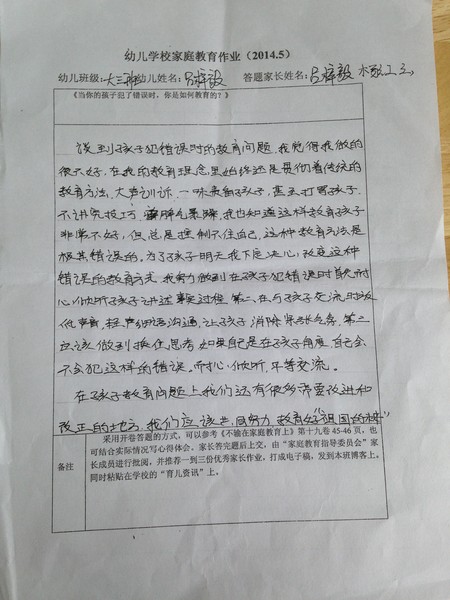 幼儿学校家庭教育作业（2014.5）
幼儿班级:大三班幼儿姓名:吕梓毅 答题家长姓名:吕梓毅
《当你的孩子犯了错误时，你是如何教育的？》
谈到孩子犯错误时的教育问题，我觉得我做的
很不好，在我的教育理念里始终还是贯彻着传统的
教育方法，大声训斥，一味责备孩子，甚至打骂孩子，
不讲究技巧，脾气暴躁，我也知道这样教育孩子
非常不好，但总是控制不住自己，这种教育方法是
极其错误的，为了孩子明天我下定决心，改变这种
错误的教育方式，我努力做到在孩子犯错误时第一耐
心倾听孩子讲述事实过程，第二、在与孩子交流时放
低声音，轻声细语沟通，让孩子消除紧张气氛，第三
应该做到换位思考，如果自己是在孩子角度，自己会
不会犯这样的错误。而耐心倾听，平等交流。
在孩子教育问题上我们还有很多需要改进和
改正的地方，我们应该共同努力，教育好“祖国的花朵”
备注
采用开卷答题的方式，可以参考《不输在家庭教育上》第十九卷 45-46 页，也
可结合实际情况写心得体会。家长答完题后上交，由“家庭教育指导委员会”家
长成员进行批阅，并推荐一到三份优秀家长作业，打成电子稿，发到本班博客上，
同时粘贴在学校的“育儿资讯”上。